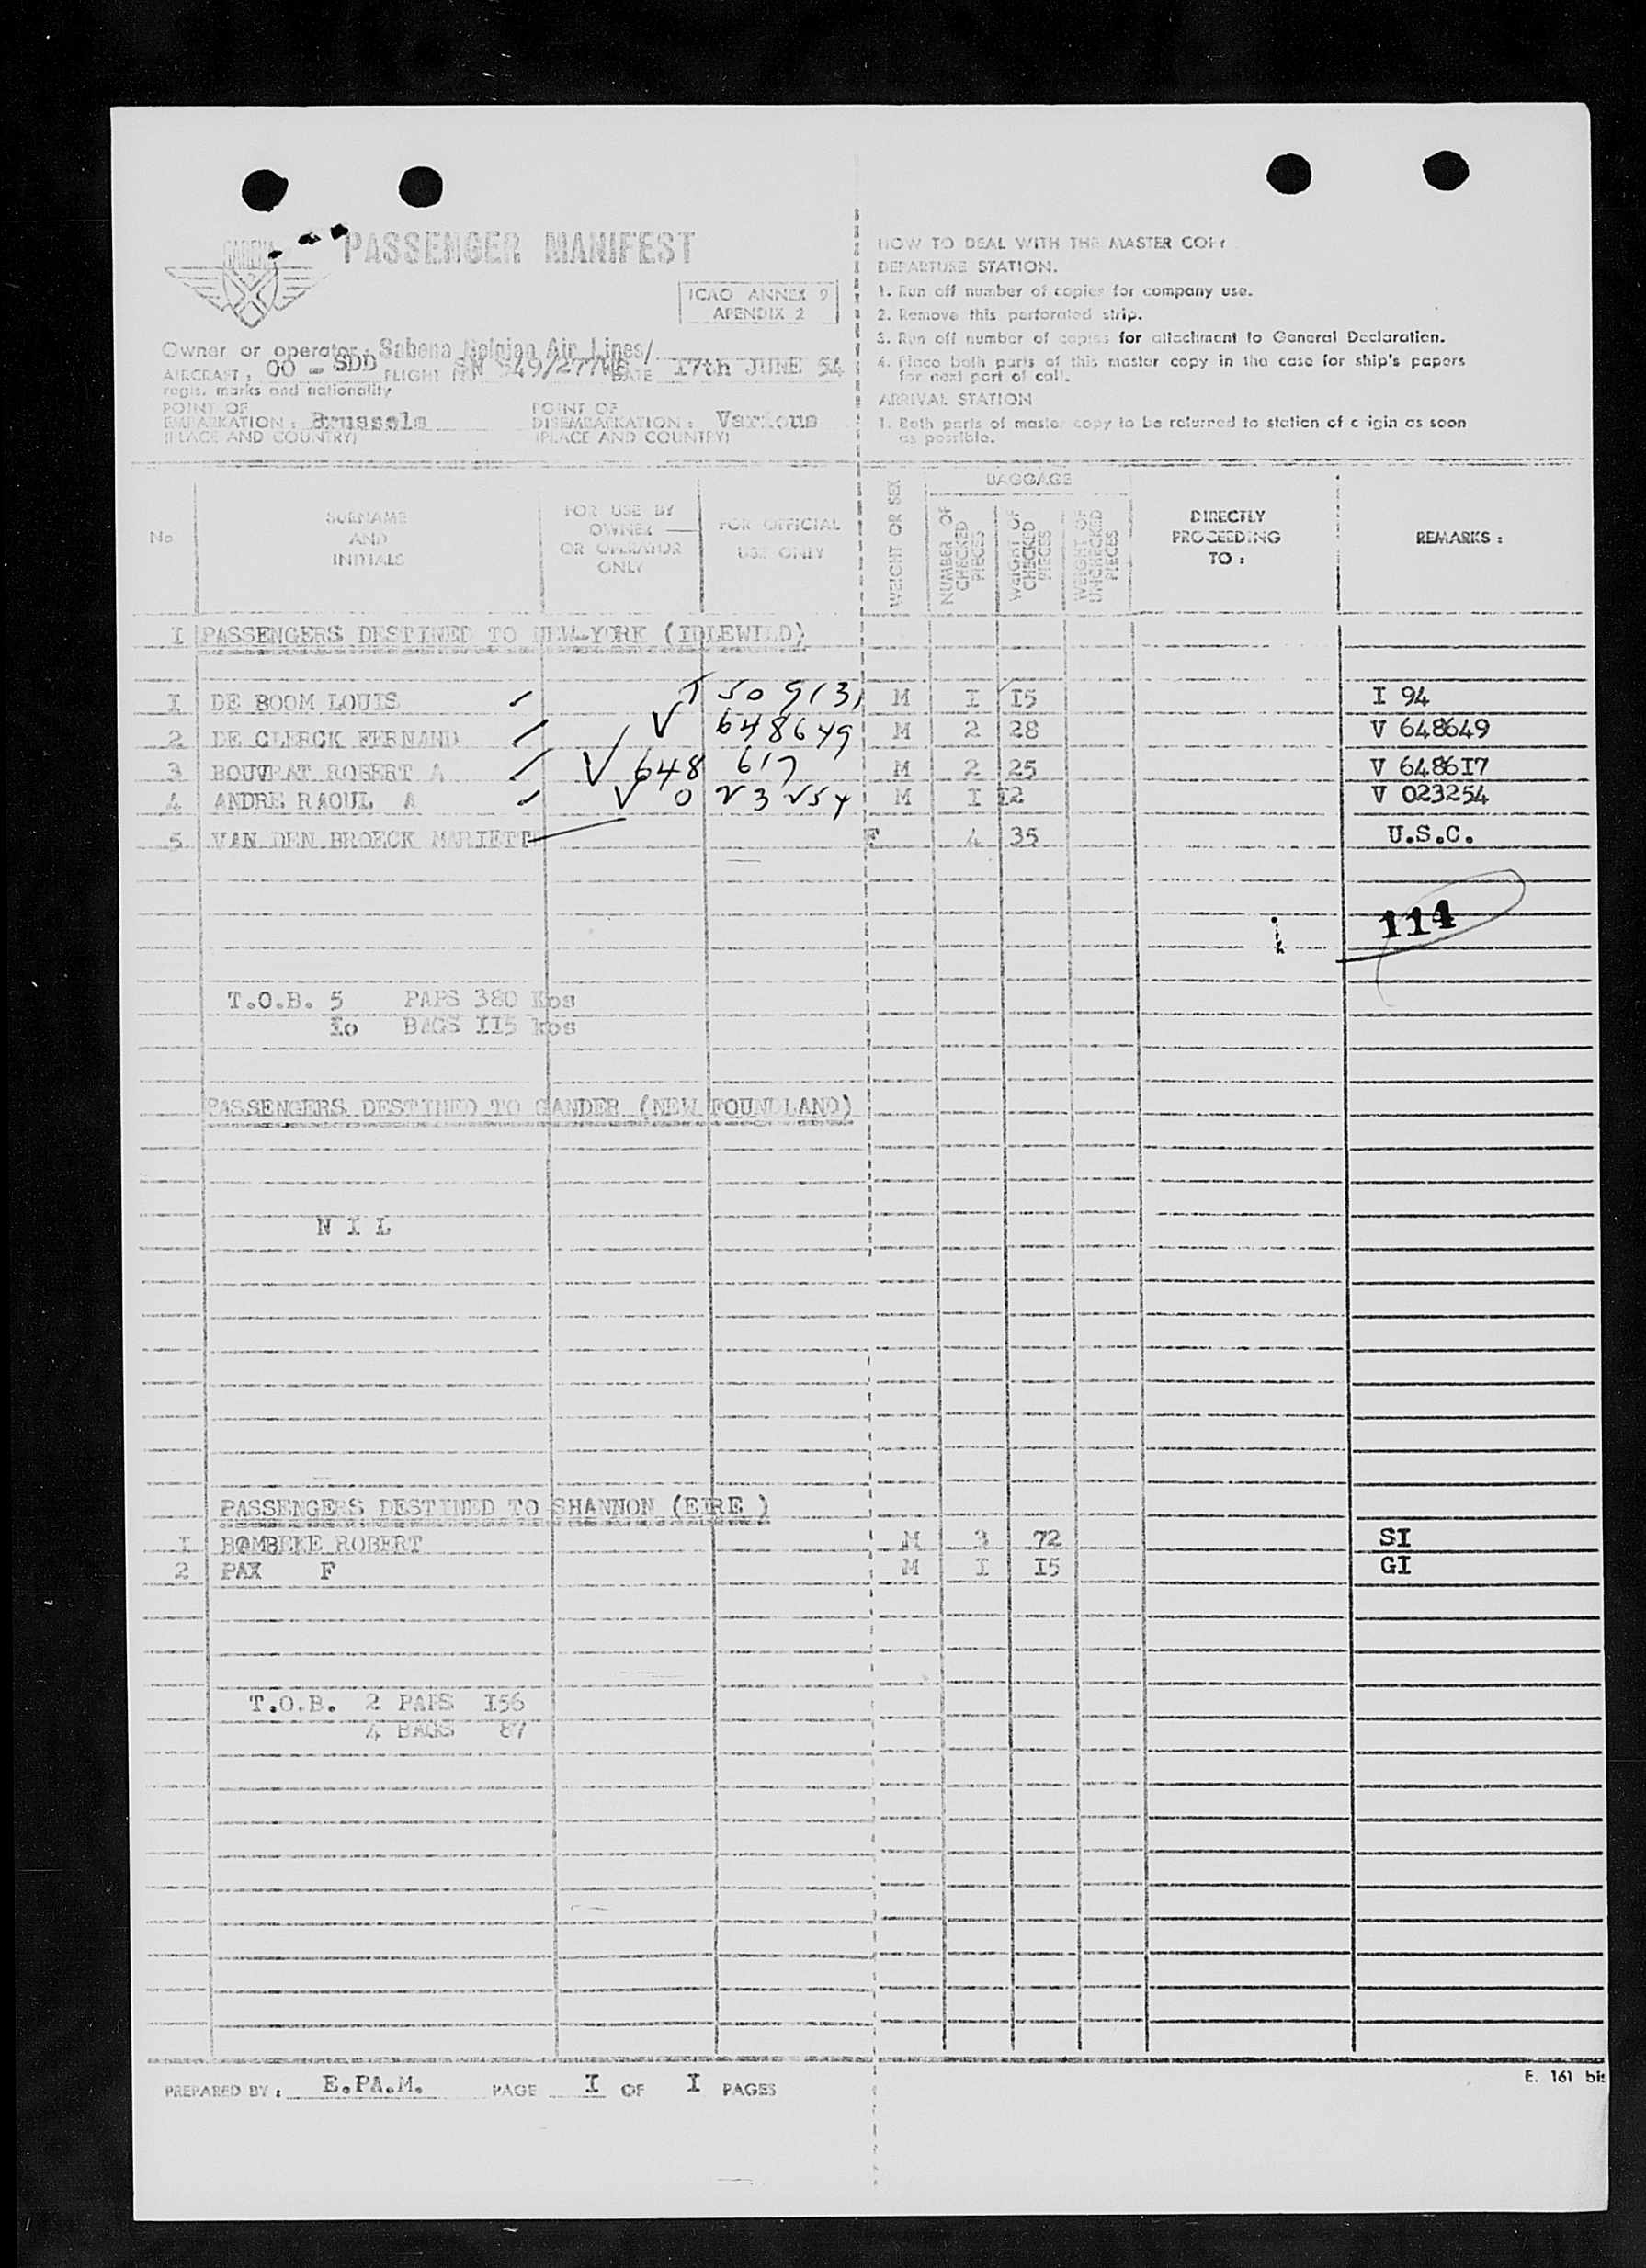 SABENA
PASSENGER MANIFEST
ICAO ANNEX 9
APENDIX 2
Owner or operator: Sabena Belgian Air Lines/
AIRCRAFT: OO - SDD FLIGHT No SN 549/277 DATE 17th JUNE 54
regis. marks and nationality
POINT OF
EMBARKATION: Brussels
(PLACE AND COUNTRY)
POINT OF
DISEMBARKATION: Various
(PLACE AND COUNTRY)
HOW TO DEAL WITH THE MASTER COPY
DEPARTURE STATION.
1. Run off number of copies for company use.
2. Remove this perforated strip.
3. Run off number of copies for attachment to General Declaration.
4. Place both parts of this master copy in the case for ship's papers
for next port of call.
ARRIVAL STATION
1. Both parts of master copy to be returned to station of origin as soon
as possible.
No
SURNAME
AND
INITIALS
FOR USE BY
OWNER
OR OPERATOR
ONLY
FOR OFFICIAL
USE ONLY
WEIGHT OR SEX
BAGGAGE
NUMBER OF
CHECKED
PIECES
WEIGHT OF
CHECKED
PIECES
WEIGHT OF
UNCHECKED
PIECES
DIRECTLY
PROCEEDING
TO :
REMARKS :
I PASSENGERS DESTINED TO NEW-YORK (IDLEWILD)
I DE BOOM LOUIS T 509131 M I I5 I 94
2 DE CLERCK FERNAND V 648649 M 2 28 V 648649
3 BOUVRAT ROBERT A V 648 617 M 2 25 V 6486I7
4 ANDRE RAOUL A V 023254 M I I2 V 023254
5 VAN DEN BROECK MARIETT F 4 35 U.S.C.
114
T.O.B. 5 PAPS 380 Kos
Io BAGS II5 kos
PASSENGERS DESTINED TO GANDER (NEW FOUNDLAND)
N I L
PASSENGERS DESTINED TO SHANNON (EIRE )
I ROBERT M 3 72 SI
2 PAX F M I I5 GI
T.O.B. 2 PAPS I56
4 BAGS 87
PREPARED BY : E.PA.M. PAGE I OF I PAGES
E. 161 bis